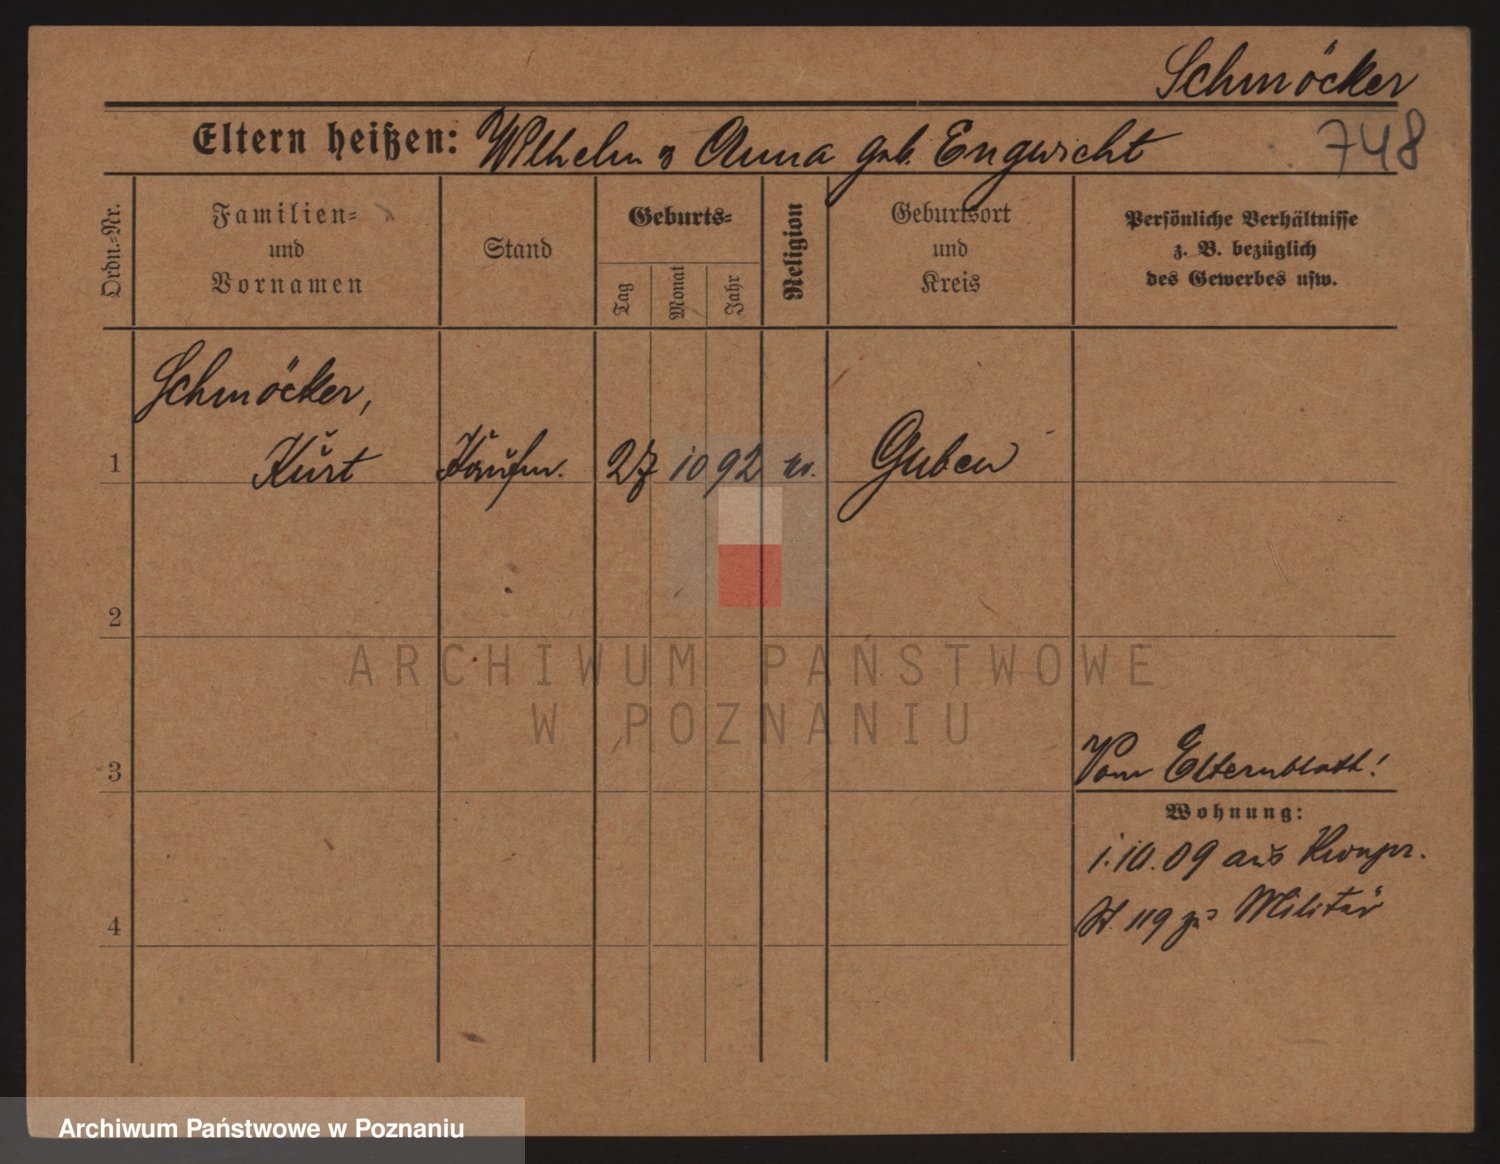 Schmöcker
Eltern heißen: Wilhelm & Anna geb. Engwicht
748
Ordn.-Nr.
Familien-
und
Vornamen
Stand
Geburts-
Tag
Monat
Jahr
Religion
Geburtsort
und
Kreis
Persönliche Verhältnisse
z. B. bezüglich
des Gewerbes usw.
Schmöcker,
1 Kurt Kaufm. 27 10 92 ev. Guben
2
ARCHIWUM PAŃSTWOWE
W POZNANIU
3 Vom Elternblatt!
Wohnung:
1.10.09 aus Kronpr.
4 St. 119 zu Militär
Archiwum Państwowe w Poznaniu